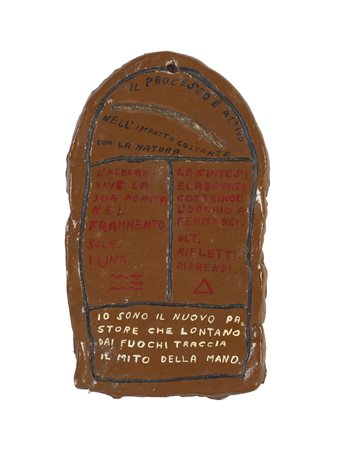 IL PROCESSO È ATTIVO
NELL'IMPATTO COSTANTE
CON LA NATURA.
L'ALBERO
VIVE LA
SUA FORMA
NEL
FRAMMENTO.
SOLE
LUNA.
LA SINTESI
ELABORATA
COSTRINGE
L'OCCHIO A
FERMARSI.
ALT.
RIFLETTI.
RIPRENDI.
IO SONO IL NUOVO PA_
STORE CHE LONTANO
DAI FUOCHI TRACCIA
IL MITO DELLA MANO.